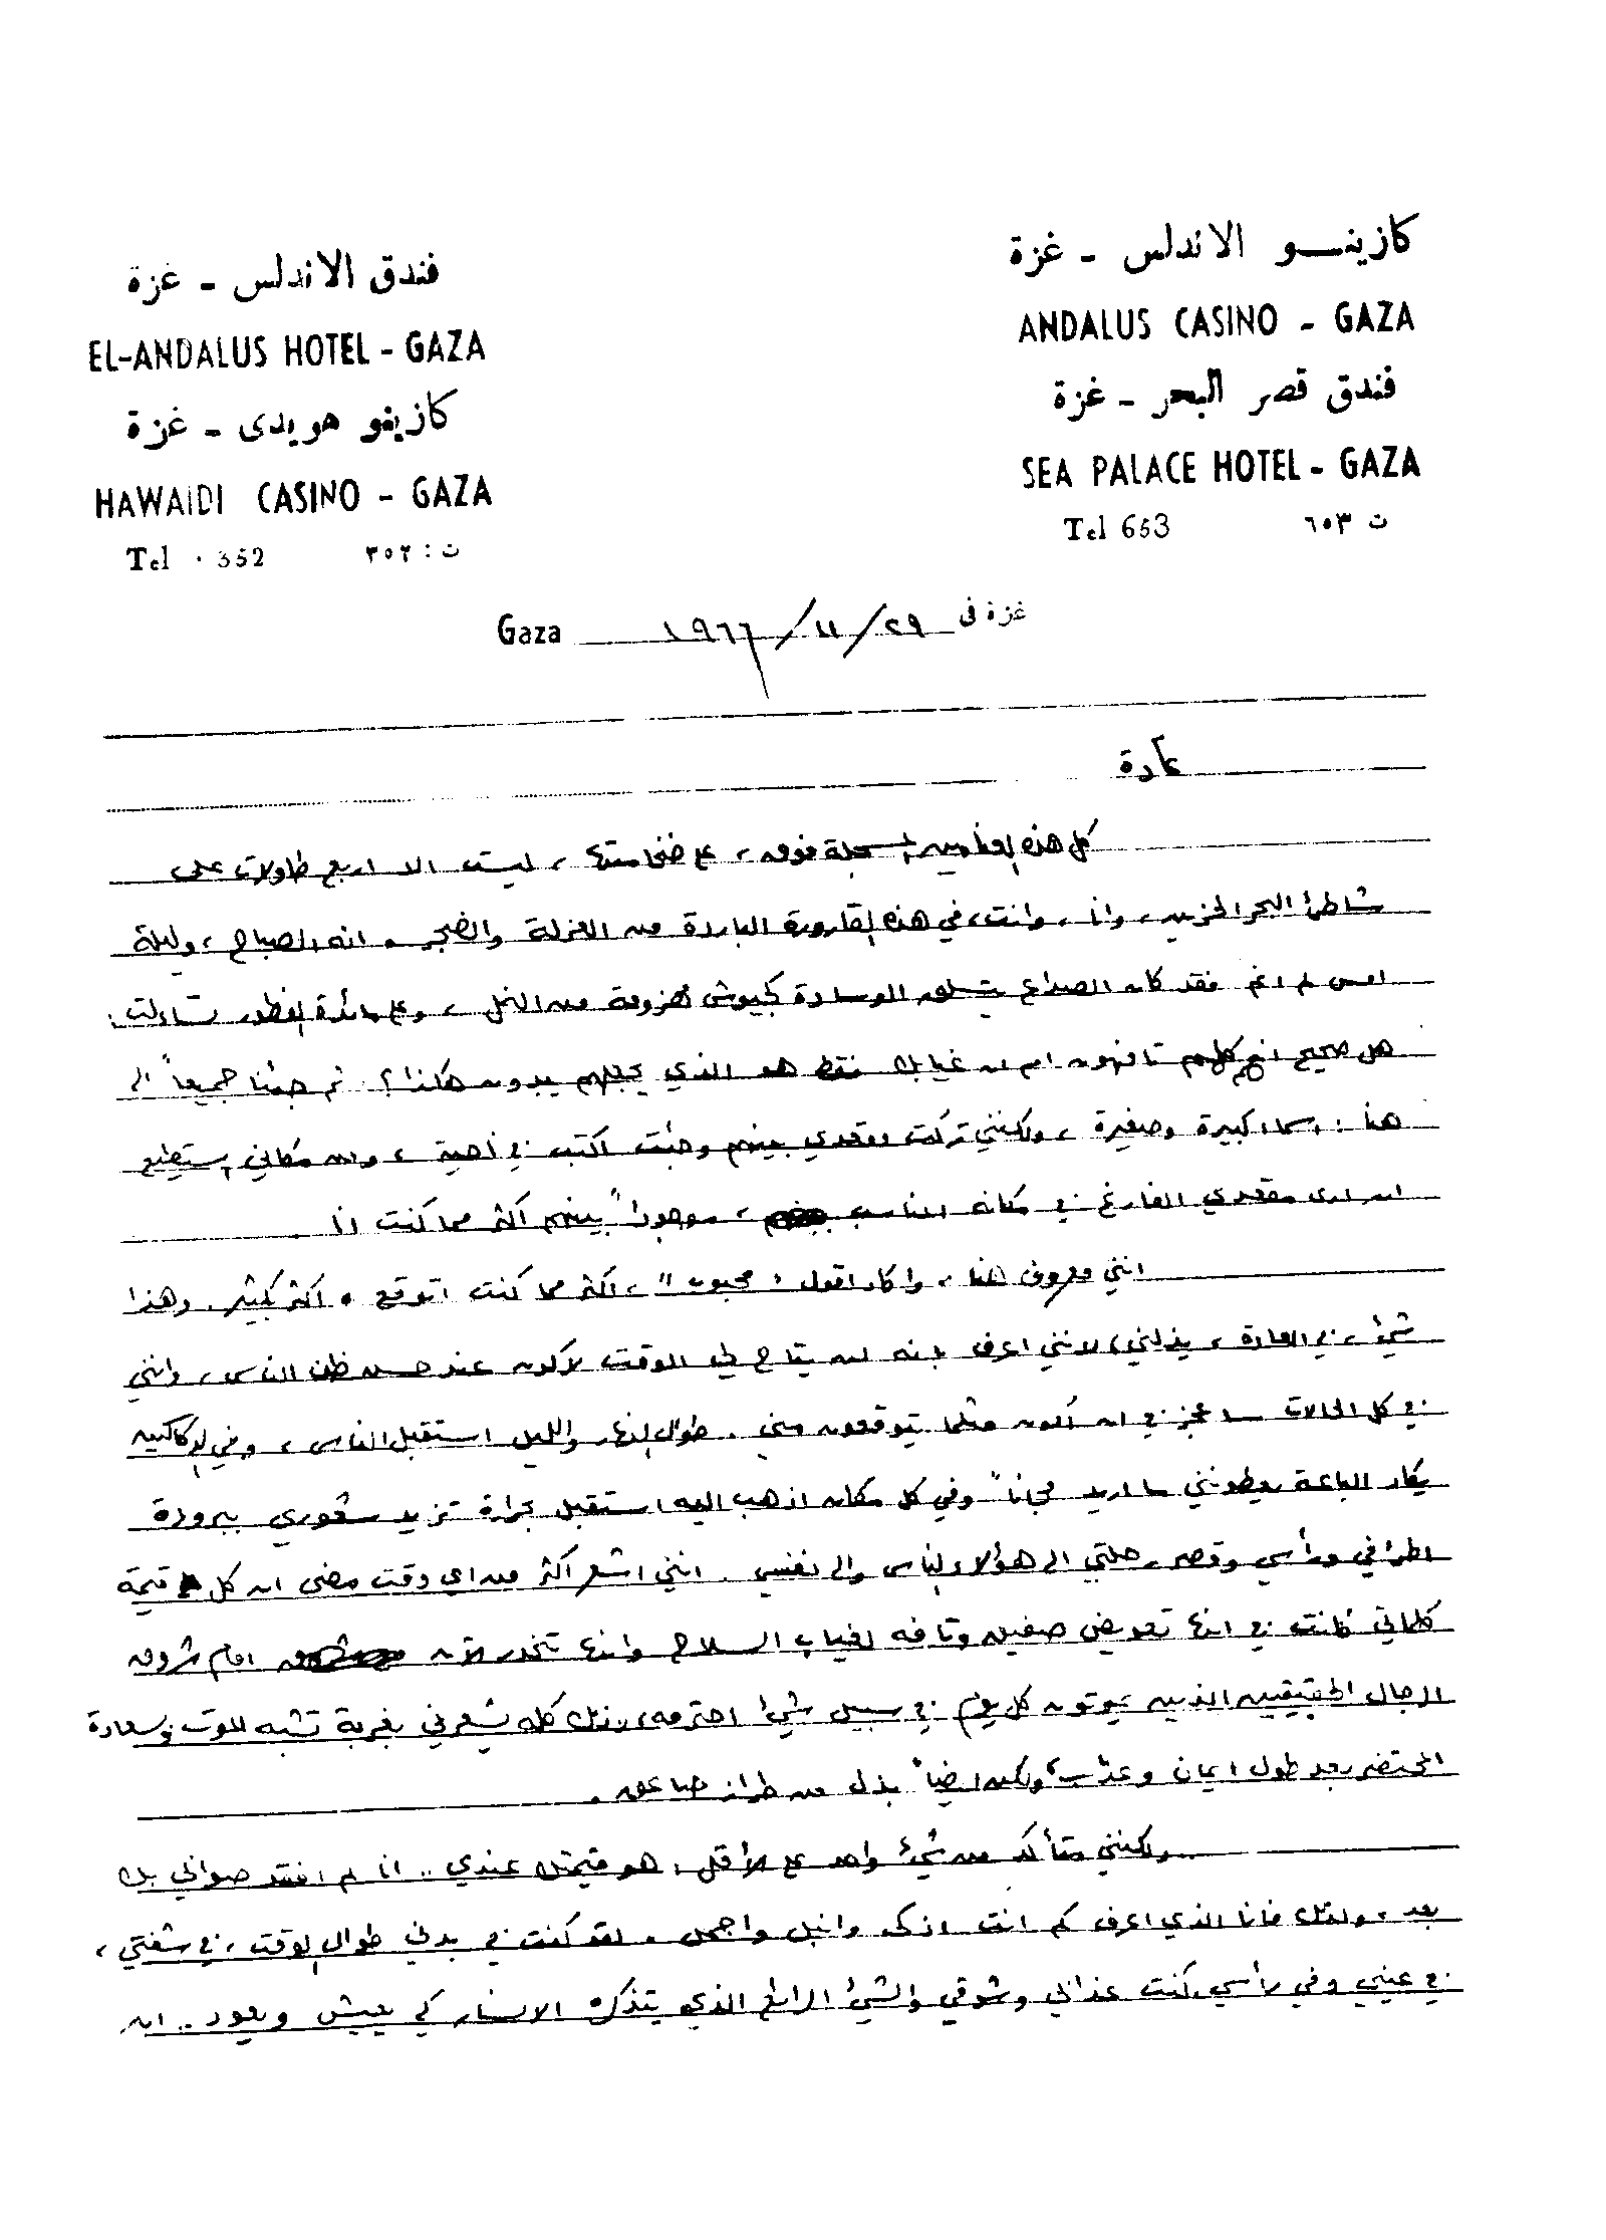 كازينو الاندلس - غزة
ANDALUS CASINO - GAZA
فندق قصر البحر - غزة
SEA PALACE HOTEL - GAZA
Tel 653 ت ٦٥٣
فندق الاندلس - غزة
EL-ANDALUS HOTEL - GAZA
كازينو هويدى - غزة
HAWAIDI CASINO - GAZA
Tel · 352 ت : ٣٥٢
غزة فى ٢٩/١١/١٩٦٦ Gaza
غادة
كل هذه العناوين المسجلة فوق، على ضخامتها، ليست الا اربع طاولات على
شاطئ البحر الحزين، وانا، وانت، في هذه القارورة الباردة من العزلة والضجر. انه الصباح، وليلة
امس لم انم فقد كان الصداع يتسلق الوسادة كجيوش مهزومة من النمل، وعلى مائدة الفطور تساءلت:
هل صحيح انهم كلهم تافهون ام ان غيابك فقط هو الذي يجعلهم يبدون هكذا؟. ثم جئنا جميعاً الى
هنا: اسماء كبيرة وصغيرة، ولكنني تركت مقعدي بينهم وجئت اكتب في ناحية، ومن مكاني استطيع
ان ارى مقعدي الفارغ في مكانه المناسب، موجوداً بينهم اكثر مما كنت انا.
انني معروف هنا، واكاد اقول "محبوب"، اكثر مما كنت اتوقع. اكثر بكثير. وهذا
شيء، في العادة، يذلني، لانني اعرف بانه لن يتاح لي الوقت لاكون عند حسن ظن الناس، وانني
في كل الحالات سأعجز في ان اكون مثلما يتوقعون مني. طوال النهار والليل استقبل الناس، وفي الدكاكين
يكاد الباعة يعطونني ما اريد مجاناً وفي كل مكان اذهب اليه استقبل بحرارة تزيد شعوري ببرودة
اطرافي ورأسي وقصر رحلتي الى هؤلاء الناس والى نفسي. انني اشعر اكثر من اي وقت مضى ان كل قيمة
كلماتي كانت في انها تعويض صفيق وتافه لغياب السلاح وانها تنحدر الآن امام شروق
الرجال الحقيقيين الذين يموتون كل يوم في سبيل شيء احترمه، وذلك كله يشعرني بغربة تشبه الموت وبسعادة
المحتضر بعد طول ايمان وعذاب، ولكن ايضاً بذل من طراز صاعق.
ولكنني متأكد من شيء واحد على الأقل، هو قيمتك عندي.. انا لم افقد صوابي بك
بعد، ولذلك فانا الذي اعرف كم انت اذكى وانبل واجمل. لقد كنت في بدني طوال الوقت، في شفتي،
في عيني وفي رأسي. كنت عذابي وشوقي والشيء الرائع الذي يتذكره الانسان كي يعيش ويعود.. ان